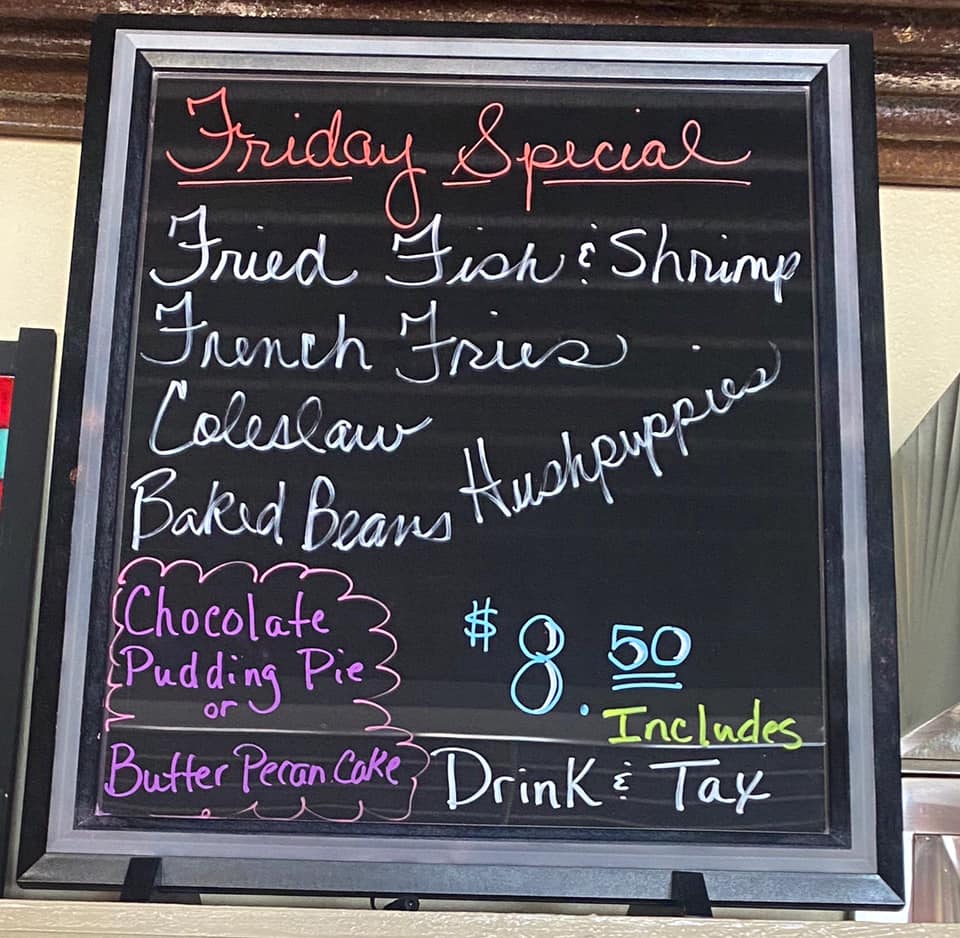 Friday Special
Fried Fish & Shrimp
French Fries
Coleslaw
Hushpuppies
Baked Beans
Chocolate
Pudding Pie
or
Butter Pecan Cake
$8.50
Includes
Drink & Tax